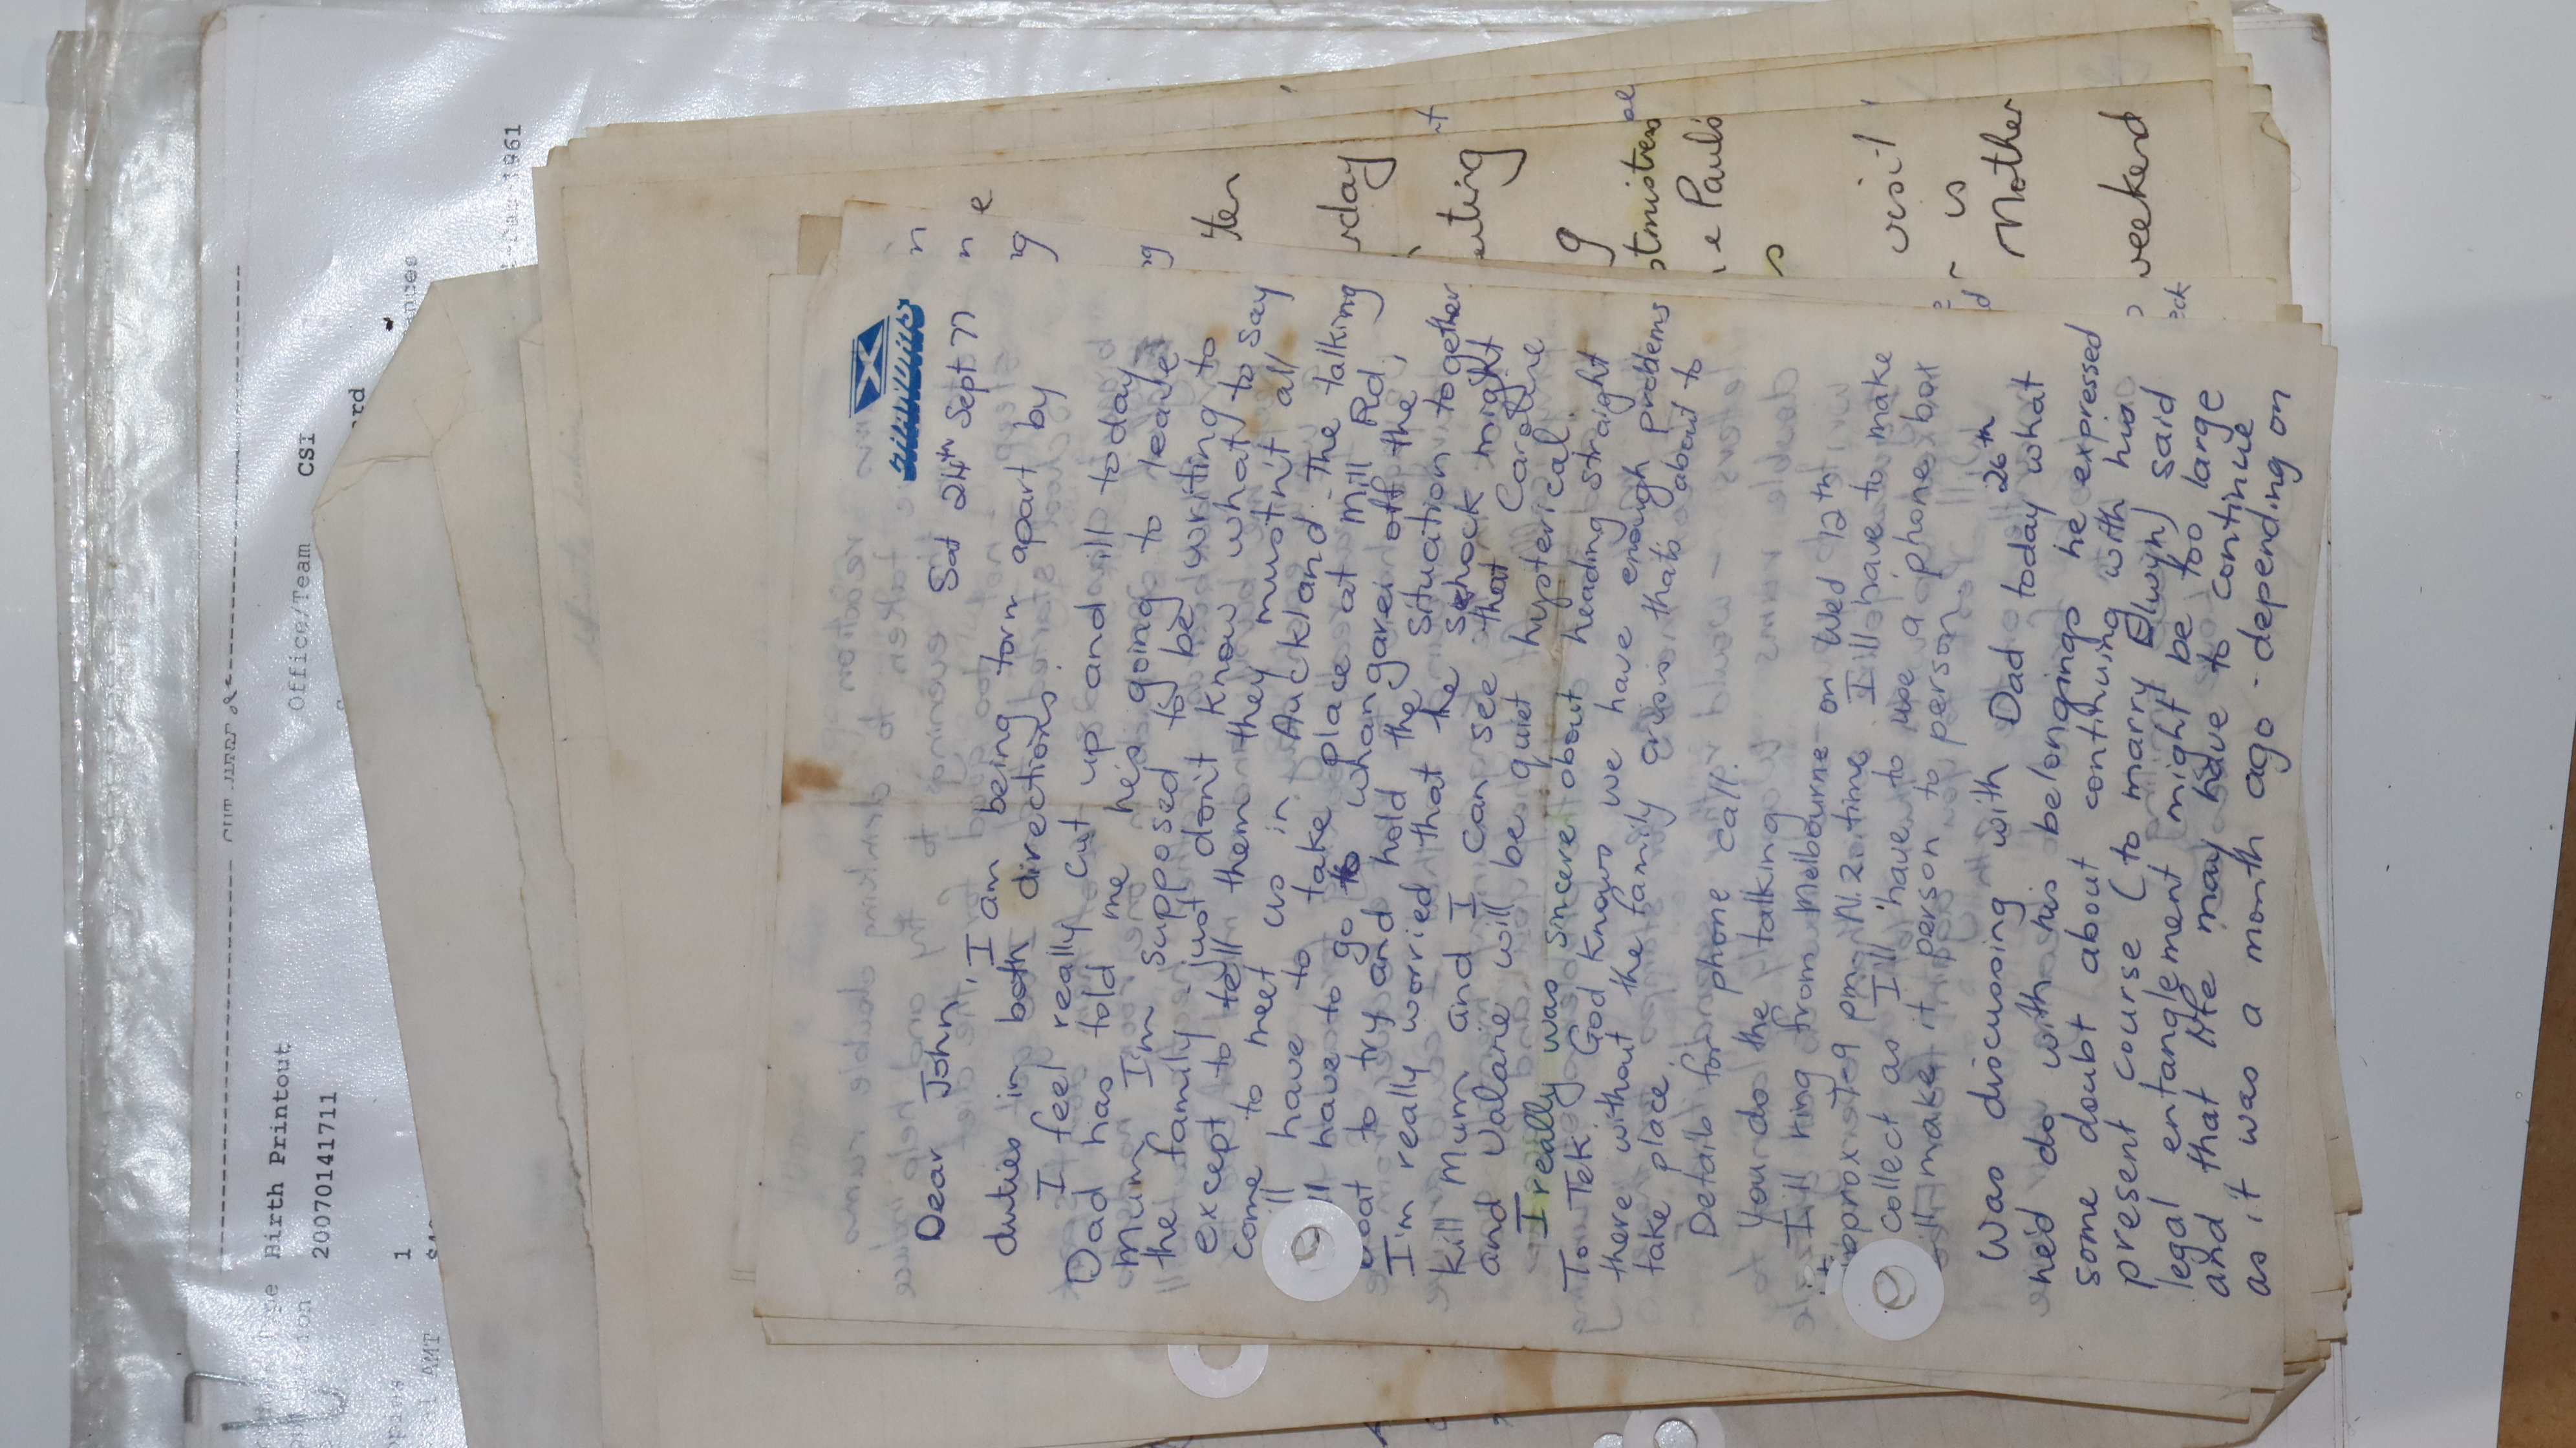 Sat 24th Sept 77
Dear John,
I am being torn apart by
duties in both directions.
I feel really cut up and ill today.
Dad has told me he's going to leave
Mum. I'm supposed to be writing to
the family - just don't know what to say
except to tell them they mustn't all
come to meet us in Auckland. The talking
have to take place at Mill Rd,
have to go to Whangarei off the
boat to try and hold the situation together
I'm really worried that the shock might
kill Mum and I can see that Caroline
and Valarie will be quiet hysterical.
I really was sincere about heading straight
To TeK. God knows we have enough problems
there without the family crisis thats about to
take place.
Details for phone call.
You do the talking
I'll ring from Melbourne on Wed 12th
approx 7 pm N.Z. time. I'll have to make
it collect as I'll have to use a phone box
I'll make it person to person.
Was discussing with Dad today what 26th
he'd do with his belongings he expressed
some doubt about continuing with his
present course (to marry Elwyn) said
legal entanglement might be too large
and that life may have to continue
as it was a month ago - depending on
n
n
e
rg
rg
ter
rday
uting
g
stmistress
e Paul's
s
visit
r is
Mother
weekend
eck
1961
ances
ord
Office/Team CSI
Birth Printout
2007014171 1
1
AMT